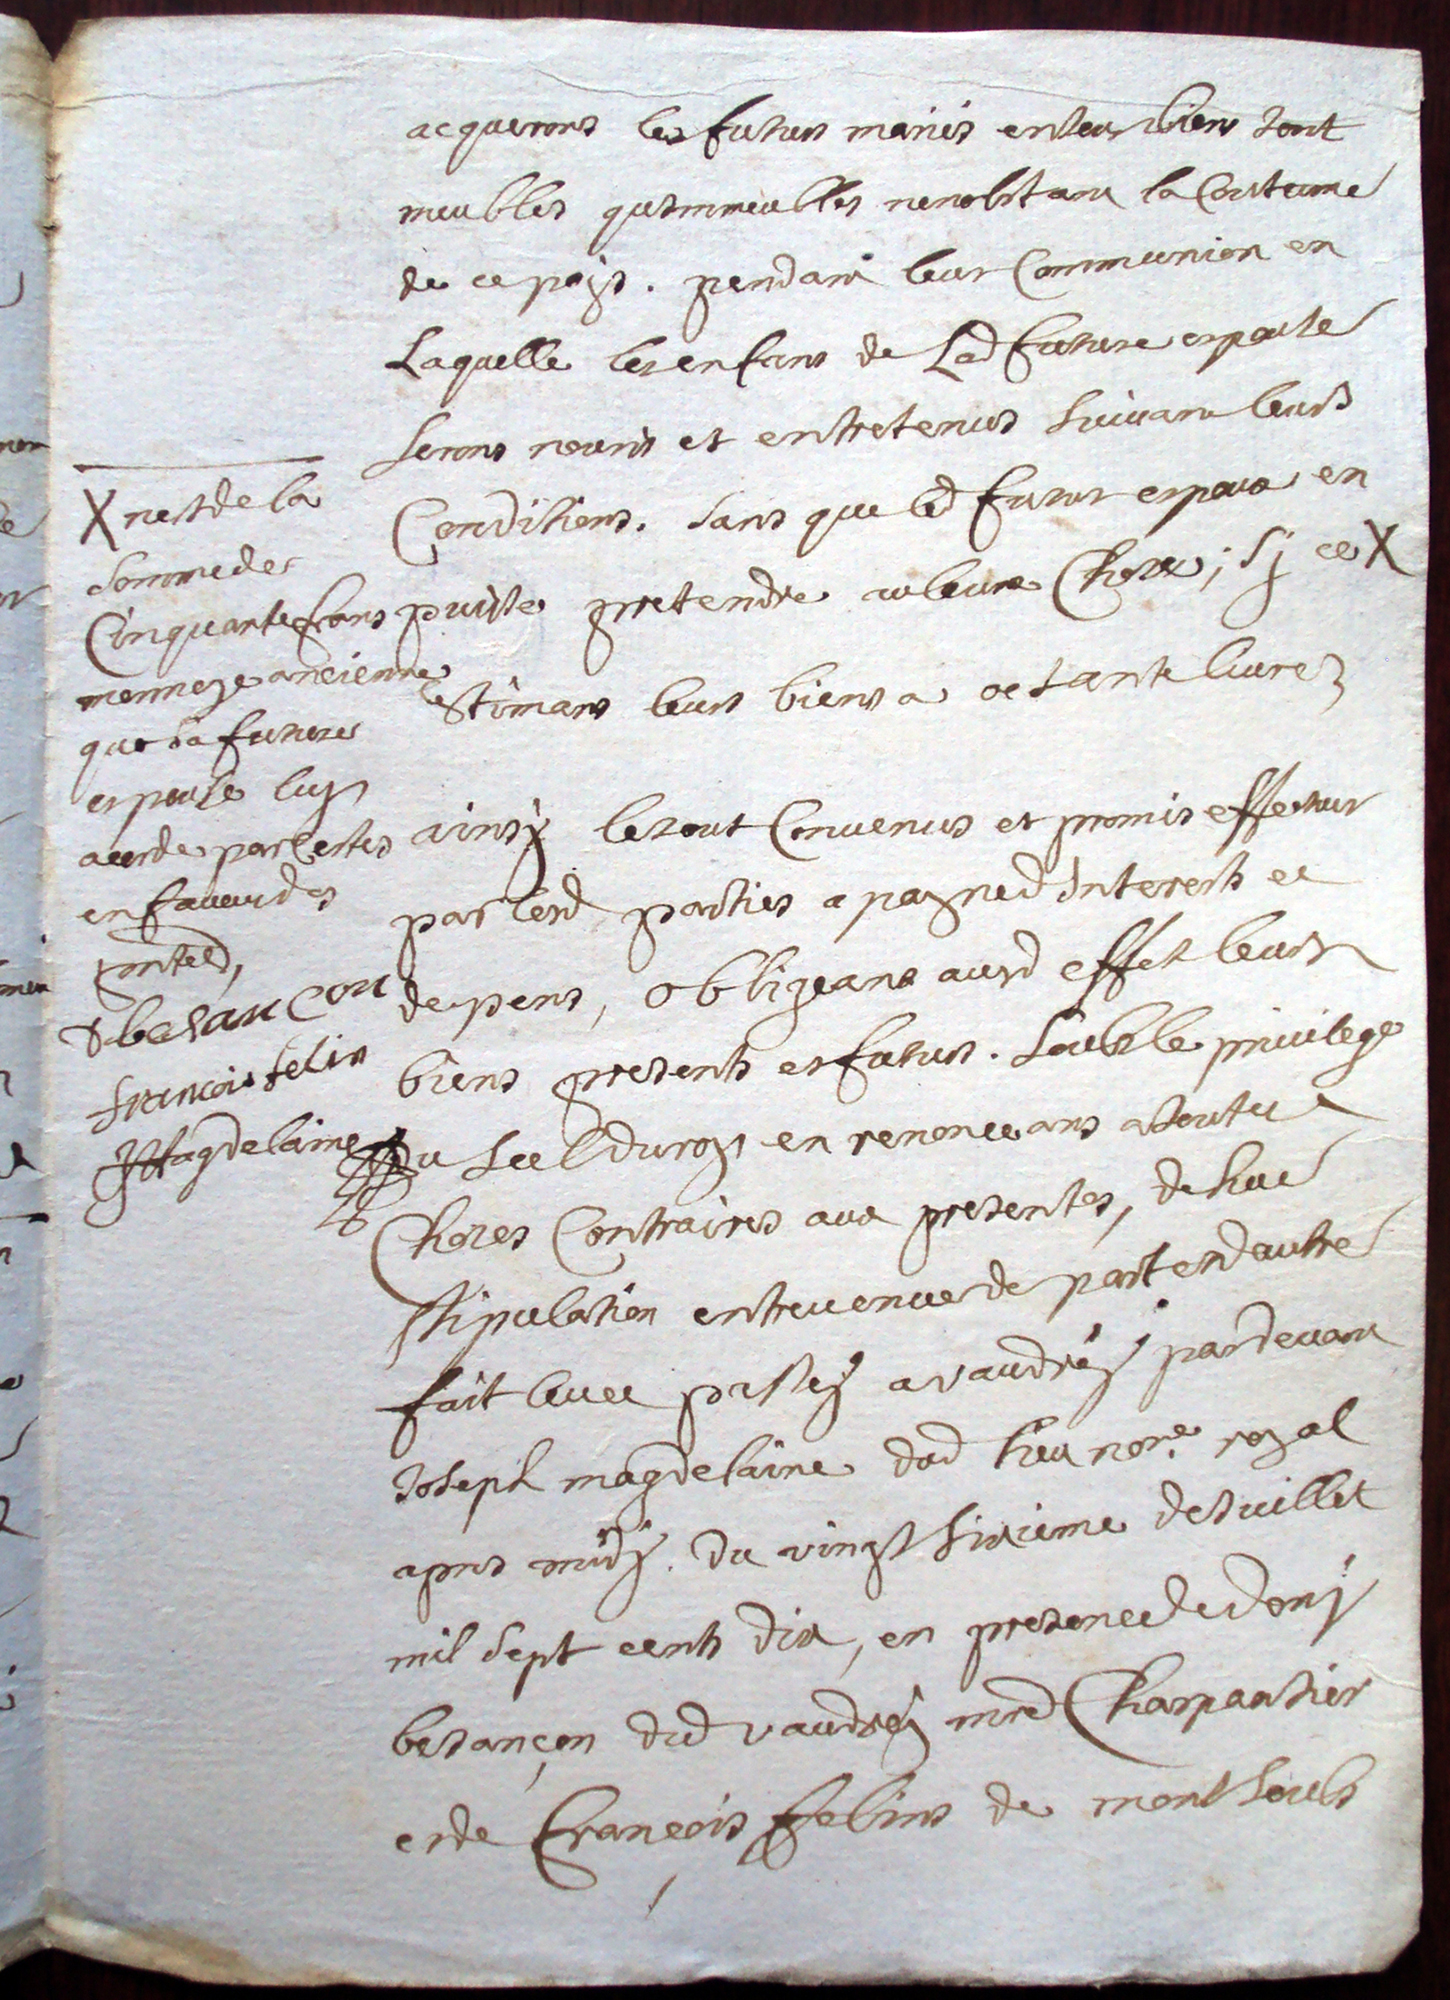 acquerons les futurs mariés en leur biens tant
meubles qu'immeubles nenobstant la Coutume
de ce pays. pendant leur Communion en
Laquelle les enfans de Lad future espouse
serons nouris et entretenus suivant leurs
Conditions. sans que led futur espoux en
puisse pretendre aulcune Chose; sj ce X
estimans leurs biens a octante livres
ainsÿ le tout Convenus et promis effectuer
par lesd parties a payne d interests et
depens, obligeans aud effet leurs
biens presents et futurs. soubs le privilege
du seel du roy en renonceans a toutte
Choses Contraires aux presentes, dehue
stipulation entrevenue de part et dautre
fait leue passeÿ a vaudreÿ pardevant
Joseph magdelaine dud lieu nore. royal
apres midÿ. du vingt sixieme de Juillet
mil sept cents dix, en presence de donÿ
besançon dud vaudreÿ mre Charpantier
et de François ffelins de mont soubs
X nest de la
somme de
Cinquante frans
monnoye ancienne
que la future
espouse luy
acorde par Cestes
en faveur des
D besancon
francois felin
JMagdelaine